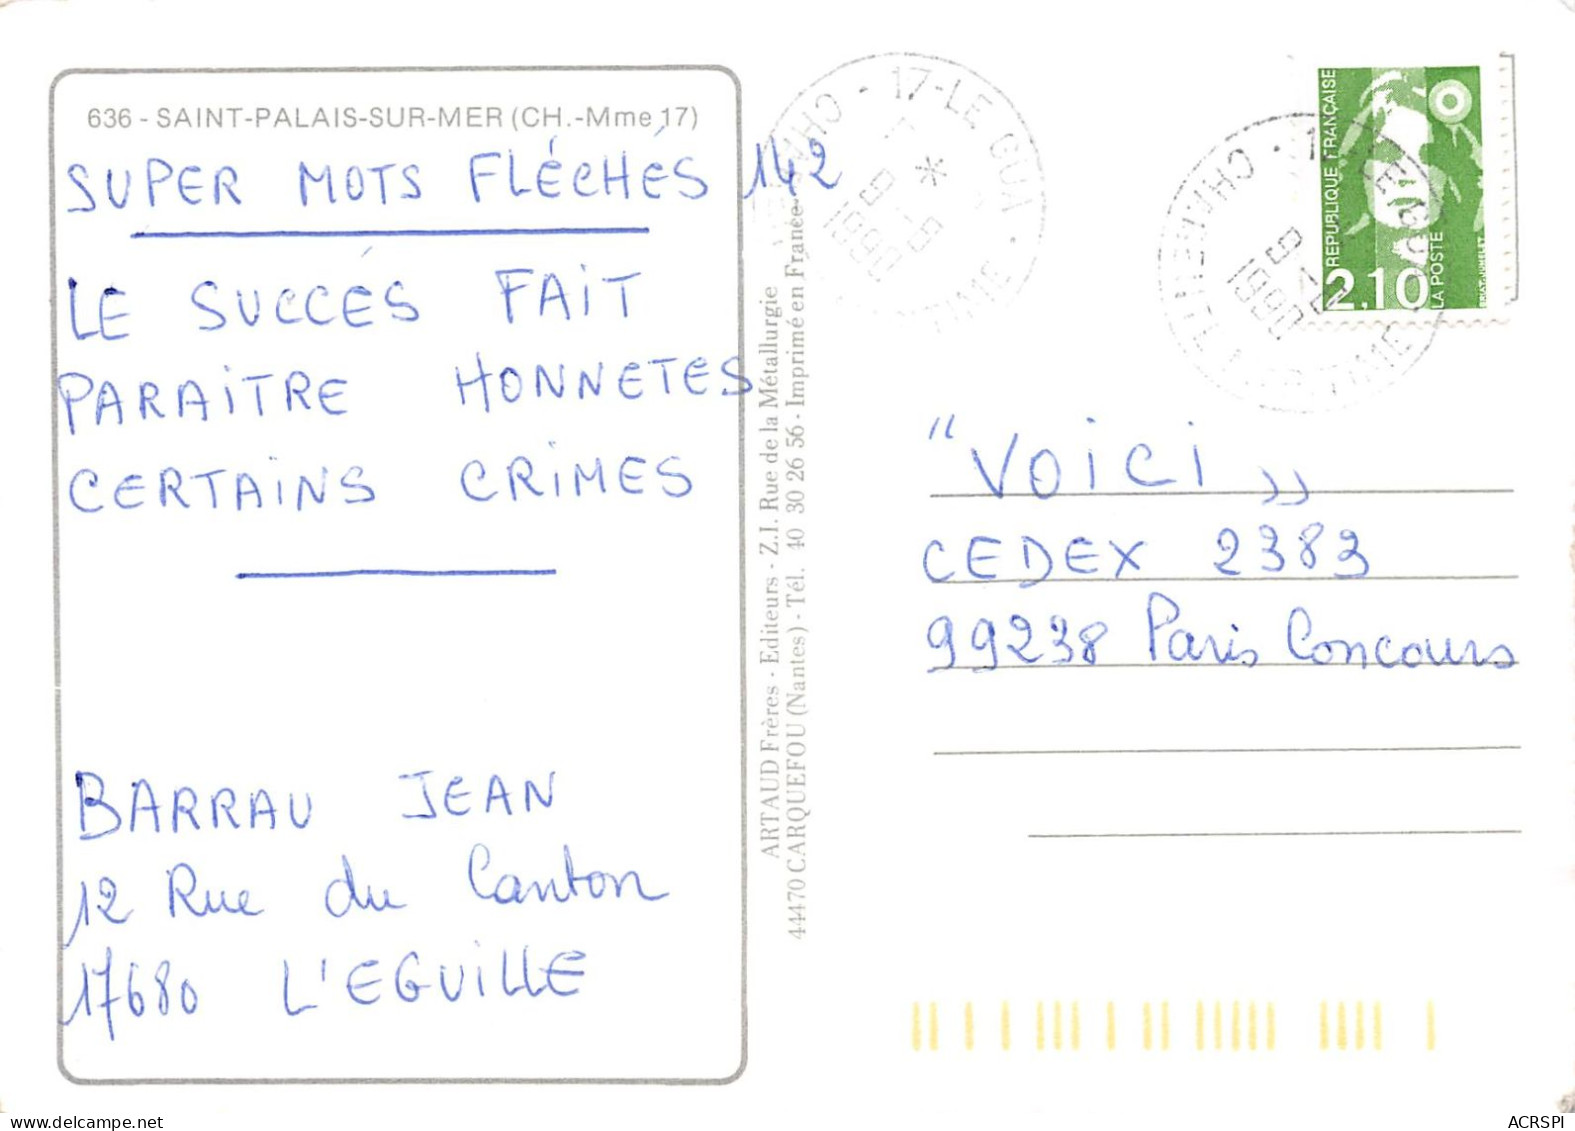 636 - SAINT-PALAIS-SUR-MER (CH.-Mme 17)
SUPER MOTS FLÉCHÉS 142
LE SUCCÉS FAIT
PARAITRE HONNETES
CERTAINS CRIMES
BARRAU JEAN
12 Rue du Canton
17680 L'EGUILLE
ARTAUD Frères - Editeurs - Z.I. Rue de la Métallurgie
44470 CARQUEFOU (Nantes) - Tél. 40 30 26 56 - Imprimé en France
17-LE GUA
1990
REPUBLIQUE FRANÇAISE
2,10
LA POSTE
"VOICI"
CEDEX 2383
99238 Paris Concours
delcampe.net
ACRSPI